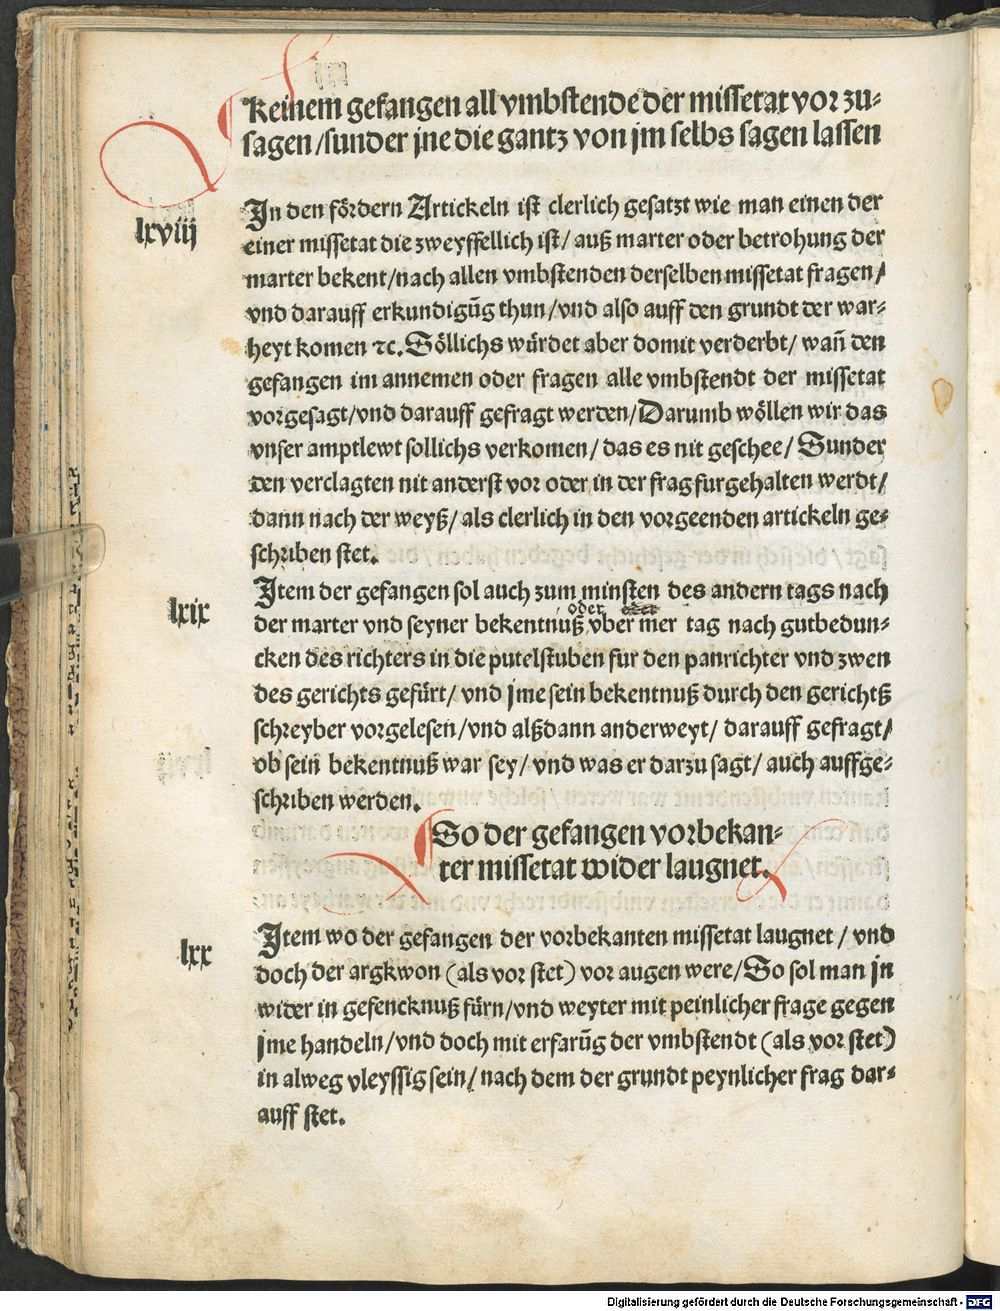 Keinem gefangen all vmbstende der missetat vor zu-
sagen /sunder jne die gantz von jm selbs sagen lassen
lxviij
In den fördern Artickeln ist clerlich gesatzt wie man einen der
einer missetat die zweyffellich ist/ auß marter oder betrohung der
marter bekent/nach allen vmbstenden derselben missetat fragen/
vnd darauff erkundigūg thun/vnd also auff den grundt der war-
heyt komen ⁊c. Söllichs würdet aber domit verderbt/ wañ den
gefangen im annemen oder fragen alle vmbstendt der missetat
vorgesagt/vnd darauff gefragt werden/Darumb wöllen wir das
vnser amptlewt sollichs verkomen/ das es nit geschee/ Sunder
den verclagten nit anderst vor oder in der frag furgehalten werdt/
dann nach der weyß/ als clerlich in den vorgeenden artickeln ge-
schriben stet.
lxix
Item der gefangen sol auch zum minsten des andern tags nach
der marter vnd seyner bekentnuß oder vber mer tag nach gutbedun-
cken des richters in die putelstuben fur den panrichter vnd zwen
des gerichts gefürt/ vnd jme sein bekentnuß durch den gerichtß
schreyber vorgelesen/vnd alßdann anderweyt/ darauff gefragt/
ob sein bekentnuß war sey/ vnd was er darzu sagt/ auch auffge-
schriben werden.
So der gefangen vorbekan-
ter missetat wider laugnet.
lxx
Item wo der gefangen der vorbekanten missetat laugnet / vnd
doch der argkwon (als vor stet) vor augen were/ So sol man jn
wider in gefencknuß fürn/vnd weyter mit peinlicher frage gegen
jme handeln/vnd doch mit erfarūg der vmbstendt (als vor stet)
in alweg vleyssig sein/ nach dem der grundt peynlicher frag dar-
auff stet.
Digitalisierung gefördert durch die Deutsche Forschungsgemeinschaft - DFG